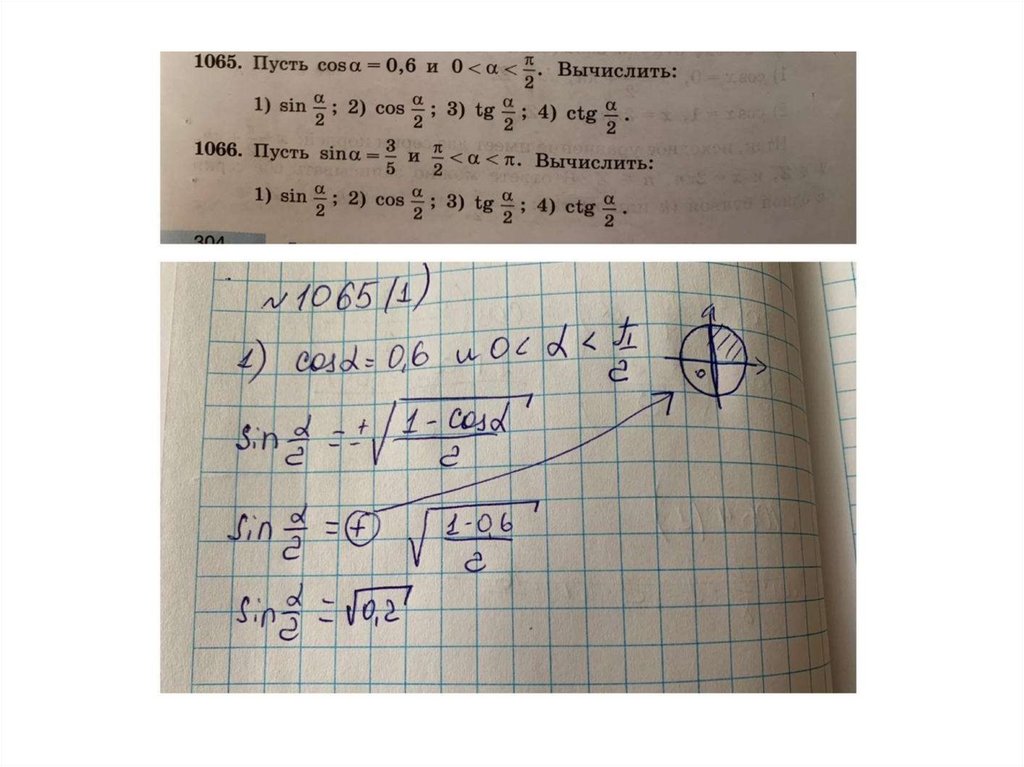 1065. Пусть cos α = 0,6 и 0 < α < π/2. Вычислить:
1) sin α/2; 2) cos α/2; 3) tg α/2; 4) ctg α/2.
1066. Пусть sin α = 3/5 и π/2 < α < π. Вычислить:
1) sin α/2; 2) cos α/2; 3) tg α/2; 4) ctg α/2.
304
№1065(1)
1) cosα = 0,6 и 0 < α < π/2
0
sin α/2 = ±√((1 - cosα)/2)
sin α/2 = + √((1-0,6)/2)
sin α/2 = √0,2